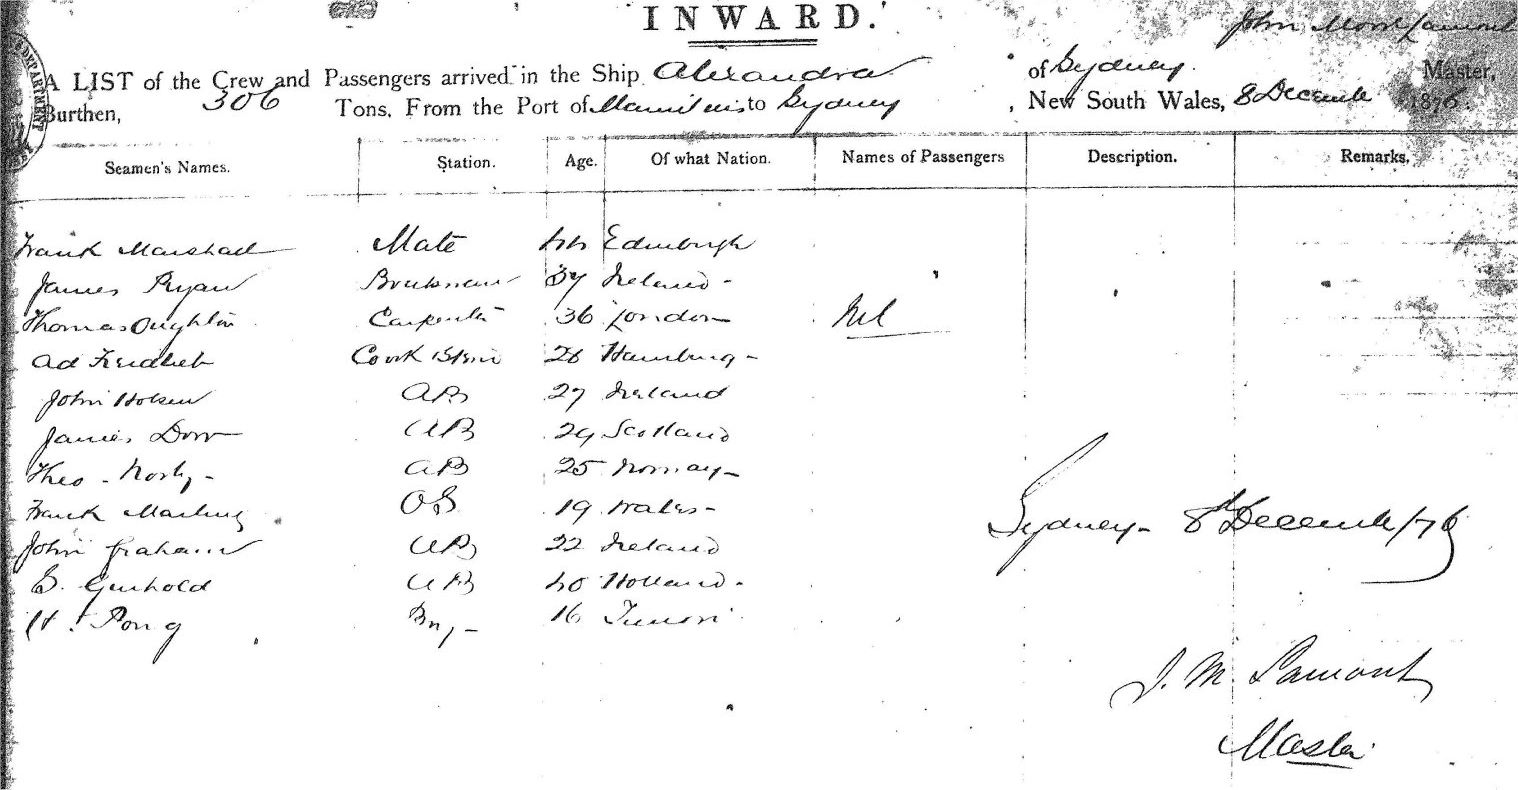 INWARD.
John Moor Lamont
A LIST of the Crew and Passengers arrived in the Ship Alexandra of Sydney. Master,
Burthen, 306 Tons, From the Port of Mauritius to Sydney, New South Wales, 8 Decembr 1876.
Seamen's Names. Station. Age. Of what Nation. Names of Passengers Description. Remarks.
Frank Marshall Mate 44 Edinburgh
James Ryan 37 Ireland -
Thomas Oughton Carpenter 36 London Nil
Ad Cook & Stew 26 Hamburg -
John Holsen AB 27 Ireland
James Dow AB 29 Scotland
Theo - AB 25 Norway -
Frank OS 19 Wales -
John Graham AB 22 Ireland
AB 40 Holland -
H. Pong Boy - 16
Sydney - 8th December /76
J. M. Lamont
Master
DEPARTMENT